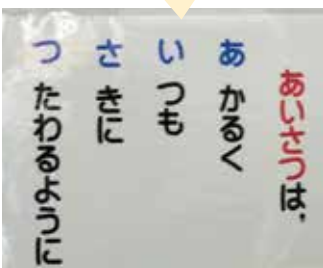 あいさつは，
あかるく
いつも
さきに
つたわるように